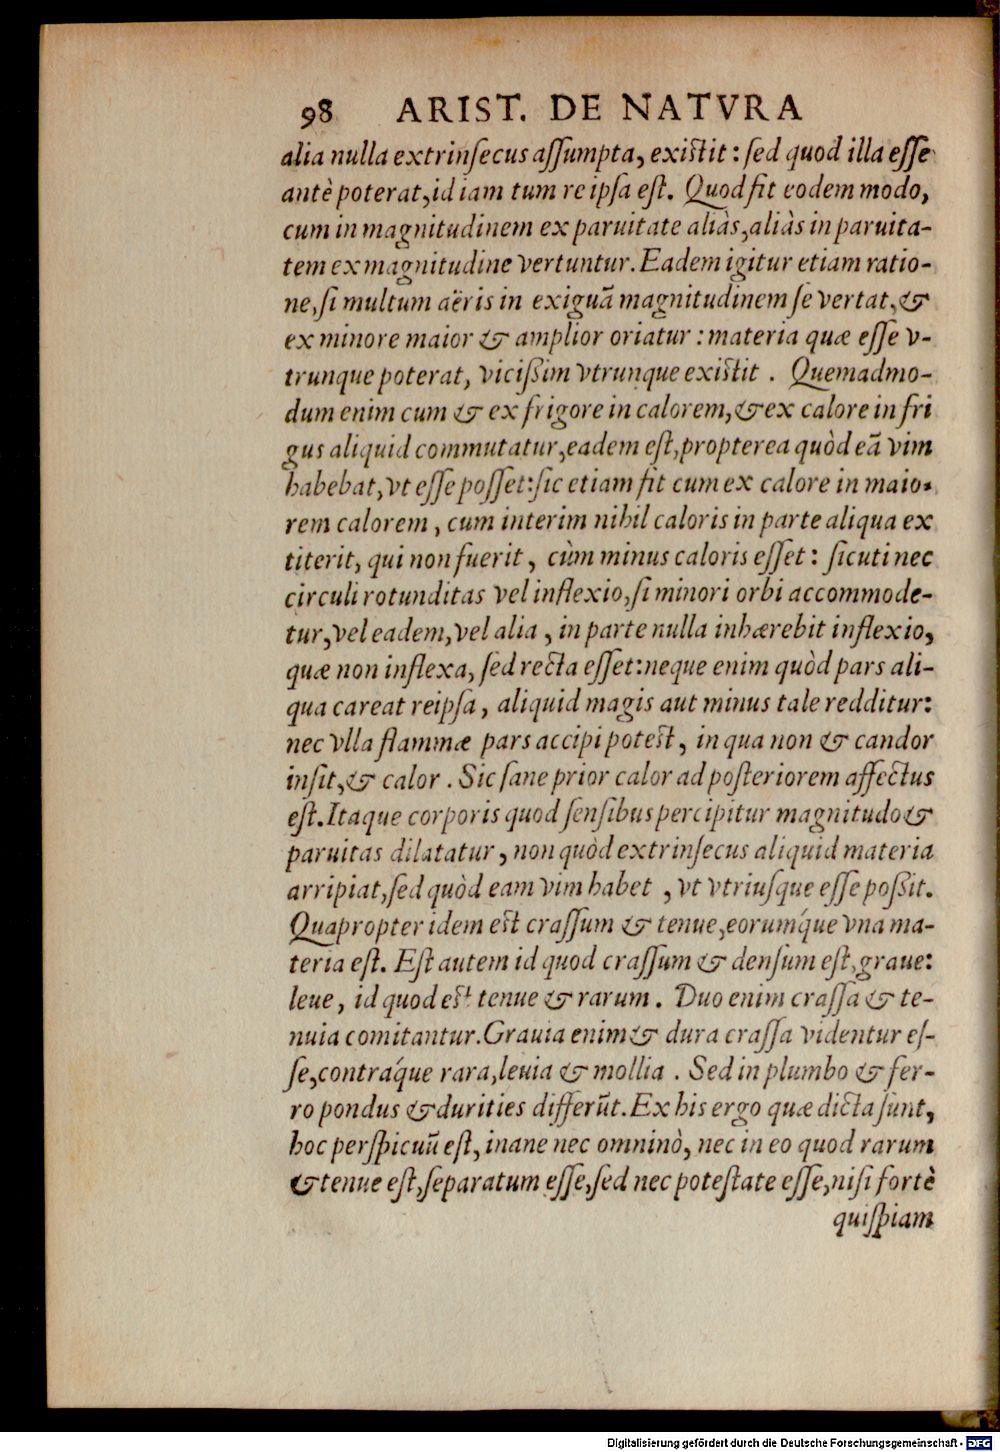 98 ARIST. DE NATVRA
alia nulla extrinſecus aſſumpta, exiſtit : ſed quod illa eſſe
antè poterat, id iam tum reipſa eſt. Quod fit eodem modo,
cum in magnitudinem ex paruitate aliàs, aliàs in paruita-
tem ex magnitudine vertuntur. Eadem igitur etiam ratio-
ne, ſi multum aëris in exiguã magnitudinem ſe vertat, &
ex minore maior & amplior oriatur : materia quæ eſſe v-
trunque poterat, viciſſim vtrunque exiſtit . Quemadmo-
dum enim cum & ex frigore in calorem, & ex calore in fri
gus aliquid commutatur, eadem eſt, propterea quòd eã vim
habebat, vt eſſe poſſet: ſic etiam fit cum ex calore in maio-
rem calorem , cum interim nihil caloris in parte aliqua ex
titerit, qui non fuerit , cùm minus caloris eſſet : ſicuti nec
circuli rotunditas vel inflexio, ſi minori orbi accommode-
tur, vel eadem, vel alia , in parte nulla inhærebit inflexio,
quæ non inflexa, ſed recta eſſet: neque enim quòd pars ali-
qua careat reipſa , aliquid magis aut minus tale redditur:
nec vlla flammæ pars accipi poteſt , in qua non & candor
inſit, & calor . Sic ſane prior calor ad poſteriorem affectus
eſt. Itaque corporis quod ſenſibus percipitur magnitudo &
paruitas dilatatur , non quòd extrinſecus aliquid materia
arripiat, ſed quòd eam vim habet , vt vtriuſque eſſe poſſit.
Quapropter idem eſt craſſum & tenue, eorumq́ue vna ma-
teria eſt. Eſt autem id quod craſſum & denſum eſt, graue:
leue , id quod eſt tenue & rarum . Duo enim craſſa & te-
nuia comitantur. Grauia enim & dura craſſa videntur eſ-
ſe, contraq́ue rara, leuia & mollia . Sed in plumbo & fer-
ro pondus & durities differũt. Ex his ergo quæ dicta ſunt,
hoc perſpicuũ eſt, inane nec omninò, nec in eo quod rarum
& tenue eſt, ſeparatum eſſe, ſed nec poteſtate eſſe, niſi fortè
quiſpiam
Digitalisierung gefördert durch die Deutsche Forschungsgemeinschaft - DFG